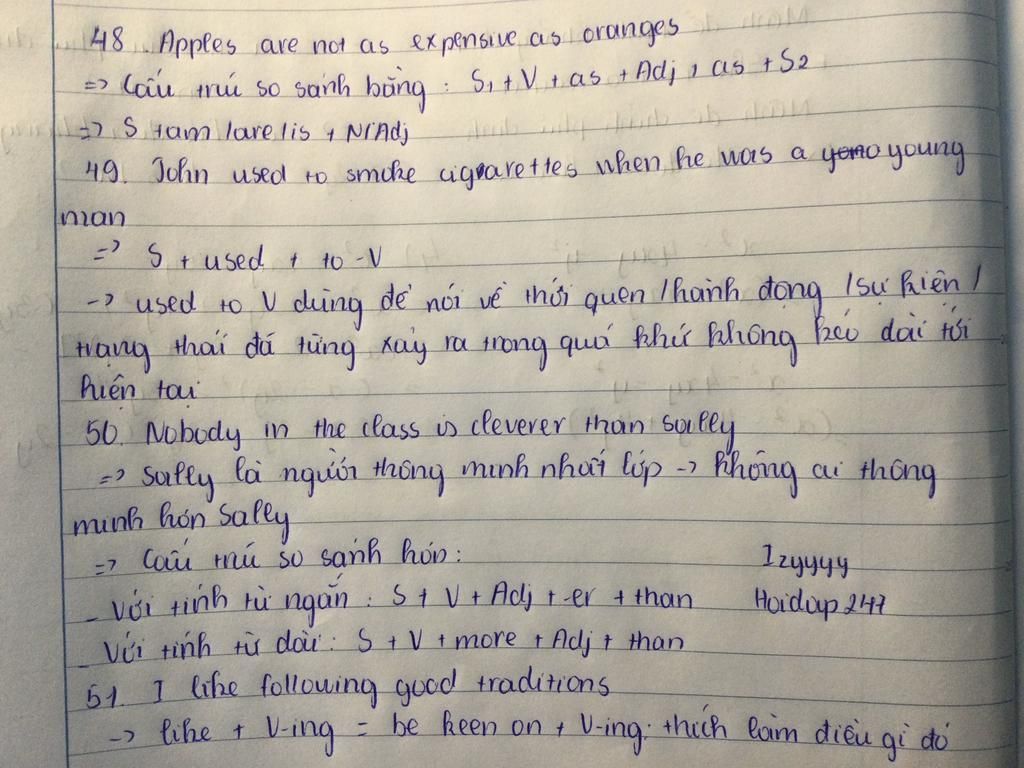 48. Apples are not as expensive as oranges
=> Cấu trú so sánh bằng : S1 + V + as + Adj + as + S2
=> S + am / are / is + N/Adj
49. John used to smoke cigarettes when he was a young
man
=> S + used + to -V
-> used to V dùng để nói về thói quen / hành động / sự kiện /
trạng thái đã từng xảy ra trong quá khứ không kéo dài tới
hiện tại
50. Nobody in the class is cleverer than Sally
=> Sally là người thông minh nhất lớp -> không ai thông
minh hơn Sally
=> Cấu trú so sánh hơn :
- Với tính từ ngắn : S + V + Adj + -er + than
- Với tính từ dài : S + V + more + Adj + than
Izyyyy
Hoidap247
51. I like following good traditions
-> like + V-ing = be keen on + V-ing : thích làm điều gì đó